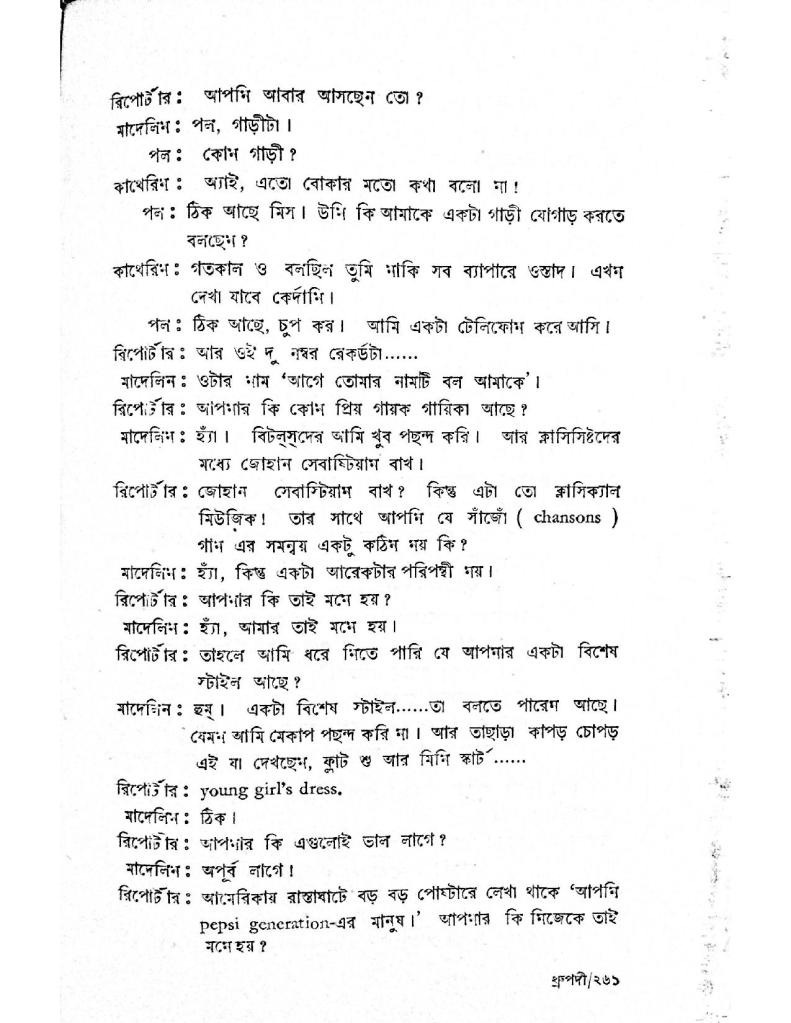 রিপোর্টার: আপনি আবার আসছেন তো?
মাদেলিন: পল, গাড়ীটা।
পল: কোন গাড়ী?
কাথেরিন: অ্যাই, এতো বোকার মতো কথা বলো না!
পল: ঠিক আছে মিস। উনি কি আমাকে একটা গাড়ী যোগাড় করতে
বলছেন?
কাথেরিন: গতকাল ও বলছিল তুমি নাকি সব ব্যাপারে ওস্তাদ। এখন
দেখা যাবে কের্দানি।
পল: ঠিক আছে, চুপ কর। আমি একটা টেলিফোন করে আসি।
রিপোর্টার: আর ওই দু নম্বর রেকর্ডটা......
মাদেলিন: ওটার নাম ‘আগে তোমার নামটি বল আমাকে’।
রিপোর্টার: আপনার কি কোন প্রিয় গায়ক গায়িকা আছে?
মাদেলিন: হ্যাঁ। বিটল্‌স্‌দের আমি খুব পছন্দ করি। আর ক্লাসিসিষ্টদের
মধ্যে জোহান সেবাস্টিয়ান বাখ।
রিপোর্টার: জোহান সেবাস্টিয়ান বাখ? কিন্তু এটা তো ক্লাসিক্যাল
মিউজিক! তার সাথে আপনি যে সাঁজোঁ ( chansons )
গান এর সমন্বয় একটু কঠিন নয় কি?
মাদেলিন: হ্যাঁ, কিন্তু একটা আরেকটার পরিপন্থী নয়।
রিপোর্টার: আপনার কি তাই মনে হয়?
মাদেলিন: হ্যাঁ, আমার তাই মনে হয়।
রিপোর্টার: তাহলে আমি ধরে নিতে পারি যে আপনার একটা বিশেষ
স্টাইল আছে?
মাদেলিন: হুম্। একটা বিশেষ স্টাইল......তা বলতে পারেন আছে।
যেমন আমি মেকাপ পছন্দ করি না। আর তাছাড়া কাপড় চোপড়
এই যা দেখছেন, ফ্লাট শু আর মিনি স্কার্ট......
রিপোর্টার: young girl's dress.
মাদেলিন: ঠিক।
রিপোর্টার: আপনার কি এগুলোই ভাল লাগে?
মাদেলিন: অপূর্ব লাগে!
রিপোর্টার: আমেরিকায় রাস্তাঘাটে বড় বড় পোষ্টারে লেখা থাকে ‘আপনি
pepsi generation-এর মানুষ।’ আপনার কি নিজেকে তাই
মনে হয়?
ধ্রুপদী/২৬১